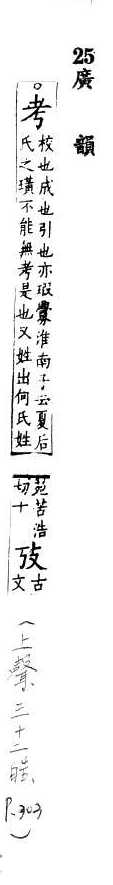 25廣韻
○考
校也成也引也亦瑕釁淮南子云夏后
氏之璜不能無考是也又姓出何氏姓
苑苦浩
切十
攷
古
文
(上聲三十二晧、
P.303)